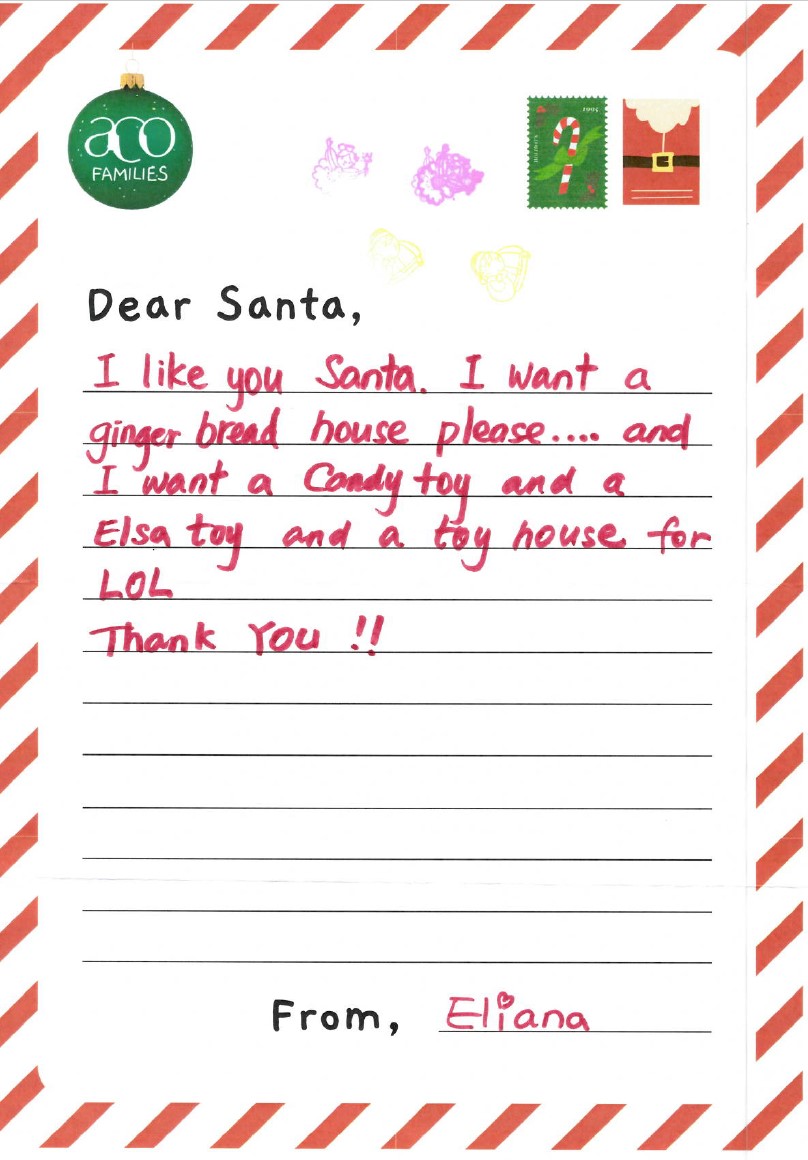 aco
FAMILIES
Dear Santa,
I like you Santa. I want a
ginger bread house please.... and
I want a Candy toy and a
Elsa toy and a toy house for
LOL
Thank You !!
From, Eliana